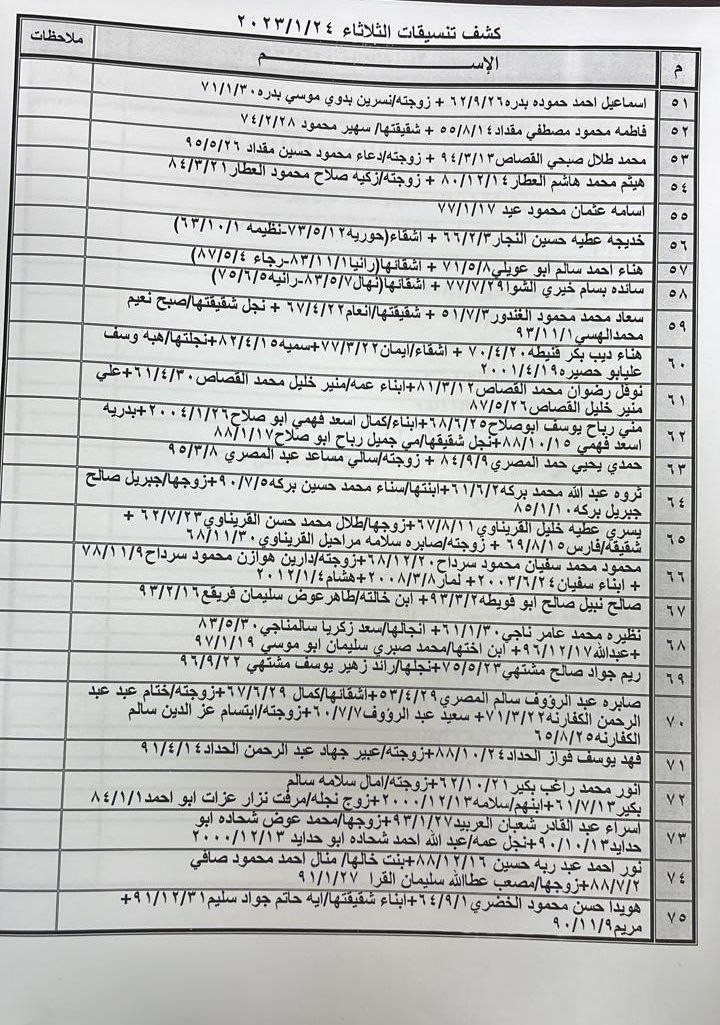 كشف تنسيقات الثلاثاء ٢٠٢٣/١/٢٤
م الإســــم ملاحظات
٥١ اسماعيل احمد حموده بدره٦٢/٩/٢٦ + زوجته/نسرين بدوي موسي بدره٧١/١/٣٠
٥٢ فاطمه محمود مصطفي مقداد٥٥/٨/١٤ + شقيقتها/ سهير محمود ٧٤/٢/٢٨
٥٣ محمد طلال صبحي القصاص٩٤/٣/١٣ + زوجته/دعاء محمود حسين مقداد ٩٥/٥/٢٦
٥٤ هيثم محمد هاشم العطار٨٠/١٢/١٤ + زوجته/زكيه صلاح محمود العطار٨٤/٣/٢١
٥٥ اسامه عثمان محمود عيد ٧٧/١/١٧
٥٦ خديجه عطيه حسين النجار٦٦/٢/٣ + اشقاء(حوريه٧٣/٥/١٢-نظيمه ٦٣/١٠/١)
٥٧ هناء احمد سالم ابو عويلي٧١/٥/٨ + اشقائها(رانيا٨٣/١١/١-رجاء ٨٧/٥/٤)
٥٨ سانده بسام خيري الشوا٧٧/٧/٢٩ + اشقائها(نهال٨٣/٥/٧-رانيه٧٥/٦/٥)
٥٩ سعاد محمد محمود الغندور٥١/٧/٣ + شقيقتها/انعام٦٧/٤/٢٢ + نجل شقيقتها/صبح نعيم
محمدالهسي٩٣/١١/١
٦٠ هناء ديب بكر قنيطه٧٠/٤/٢٠ + اشقاء/ايمان٧٧/٣/٢٢+سميه٨٢/٤/١٥+نجلتها/هبه وسف
عليابو حصيره٢٠٠١/٤/١٩
٦١ نوفل رضوان محمد القصاص٨١/٣/١٢+ابناء عمه/منير خليل محمد القصاص٦١/٤/٣٠+علي
منير خليل القصاص٨٧/٥/٢٦
٦٢ مني رباح يوسف ابوصلاح٦٨/٦/٢٥+ابناء/كمال اسعد فهمي ابو صلاح٢٠٠٤/١/٢٦+بدريه
اسعد فهمي ٨٨/١٠/١٥+نجل شقيقها/مي جميل رباح ابو صلاح٨٨/١/١٧
٦٣ حمدي يحيي حمد المصري٨٤/٩/٩ + زوجته/سالي مساعد عبد المصري ٩٥/٣/٨
٦٤ ثروه عبد الله محمد بركه٦١/٦/٢+ابنتها/سناء محمد حسين بركه٩٠/٧/٥+زوجها/جبريل صالح
جبريل بركه٨٥/١/١٠
٦٥ يسري عطيه خليل القريناوي٦٧/٨/١١+زوجها/طلال محمد حسن القريناوي٦٢/٧/٢٣ +
شقيقه/فارس٦٩/٨/١٥ + زوجته/صابره سلامه مراحيل القريناوي٦٨/١١/٣٠
٦٦ محمود محمد سفيان محمود سرداح٦٨/١٢/٢٠+زوجته/دارين هوازن محمود سرداح٧٨/١١/٩
+ ابناء سفيان٢٠٠٣/٦/٢٤+ لمار٢٠٠٨/٣/٨+هشام٢٠١٢/١/٤
٦٧ صالح نبيل صالح ابو فويطه٩٣/٣/٢+ ابن خالته/طاهرعوض سليمان فريقع٩٣/٢/١٦
٦٨ نظيره محمد عامر ناجي٦١/١/٣٠+ انجالها/سعد زكريا سالمناجي٨٣/٥/٣٠
+عبدالله٩٦/١٢/١٧+ ابن اختها/محمد صبري سليمان ابو موسي ٩٧/١/١٩
٦٩ ريم جواد صالح مشتهي٧٥/٥/٢٣+نجلها/رائد زهير يوسف مشتهي ٩٦/٩/٢٢
٧٠ صابره عبد الرؤوف سالم المصري٥٣/٤/٢٩+اشقائها/كمال ٦٧/٦/٢٩+زوجته/ختام عبد عبد
الرحمن الكفارنه٧١/٣/٢٢+ سعيد عبد الرؤوف٦٠/٧/٧+زوجته/ابتسام عز الدين سالم
الكفارنه٦٥/٨/٢٥
٧١ فهد يوسف فواز الحداد٨٨/١٠/٢٤+زوجته/عبير جهاد عبد الرحمن الحداد٩١/٤/١٤
٧٢ انور محمد راغب بكير٦٢/١٠/٢١+زوجته/امال سلامه سالم
بكير٦١/٧/١٣+ابنهم/سلامه٢٠٠٠/١٢/١٣+زوج نجله/مرفت نزار عزات ابو احمد٨٤/١/١
٧٣ اسراء عبد القادر شعبان العربيد٩٣/١/٢٧+زوجها/محمد عوض شحاده ابو
حدايد٩٠/١٠/١٣+نجل عمه/عبد الله احمد شحاده ابو حدايد ٢٠٠٠/١٢/١٣
٧٤ نور احمد عبد ربه حسين ٨٨/١٢/١٦+بنت خالها/ منال احمد محمود صافي
٨٨/٧/٢+زوجها/مصعب عطاالله سليمان القرا ٩١/١/٢٧
٧٥ هويدا حسن محمود الخضري٦٤/٩/١+ابناء شقيقتها/ايه حاتم جواد سليم٩١/١٢/٣١+
مريم٩٠/١١/٩